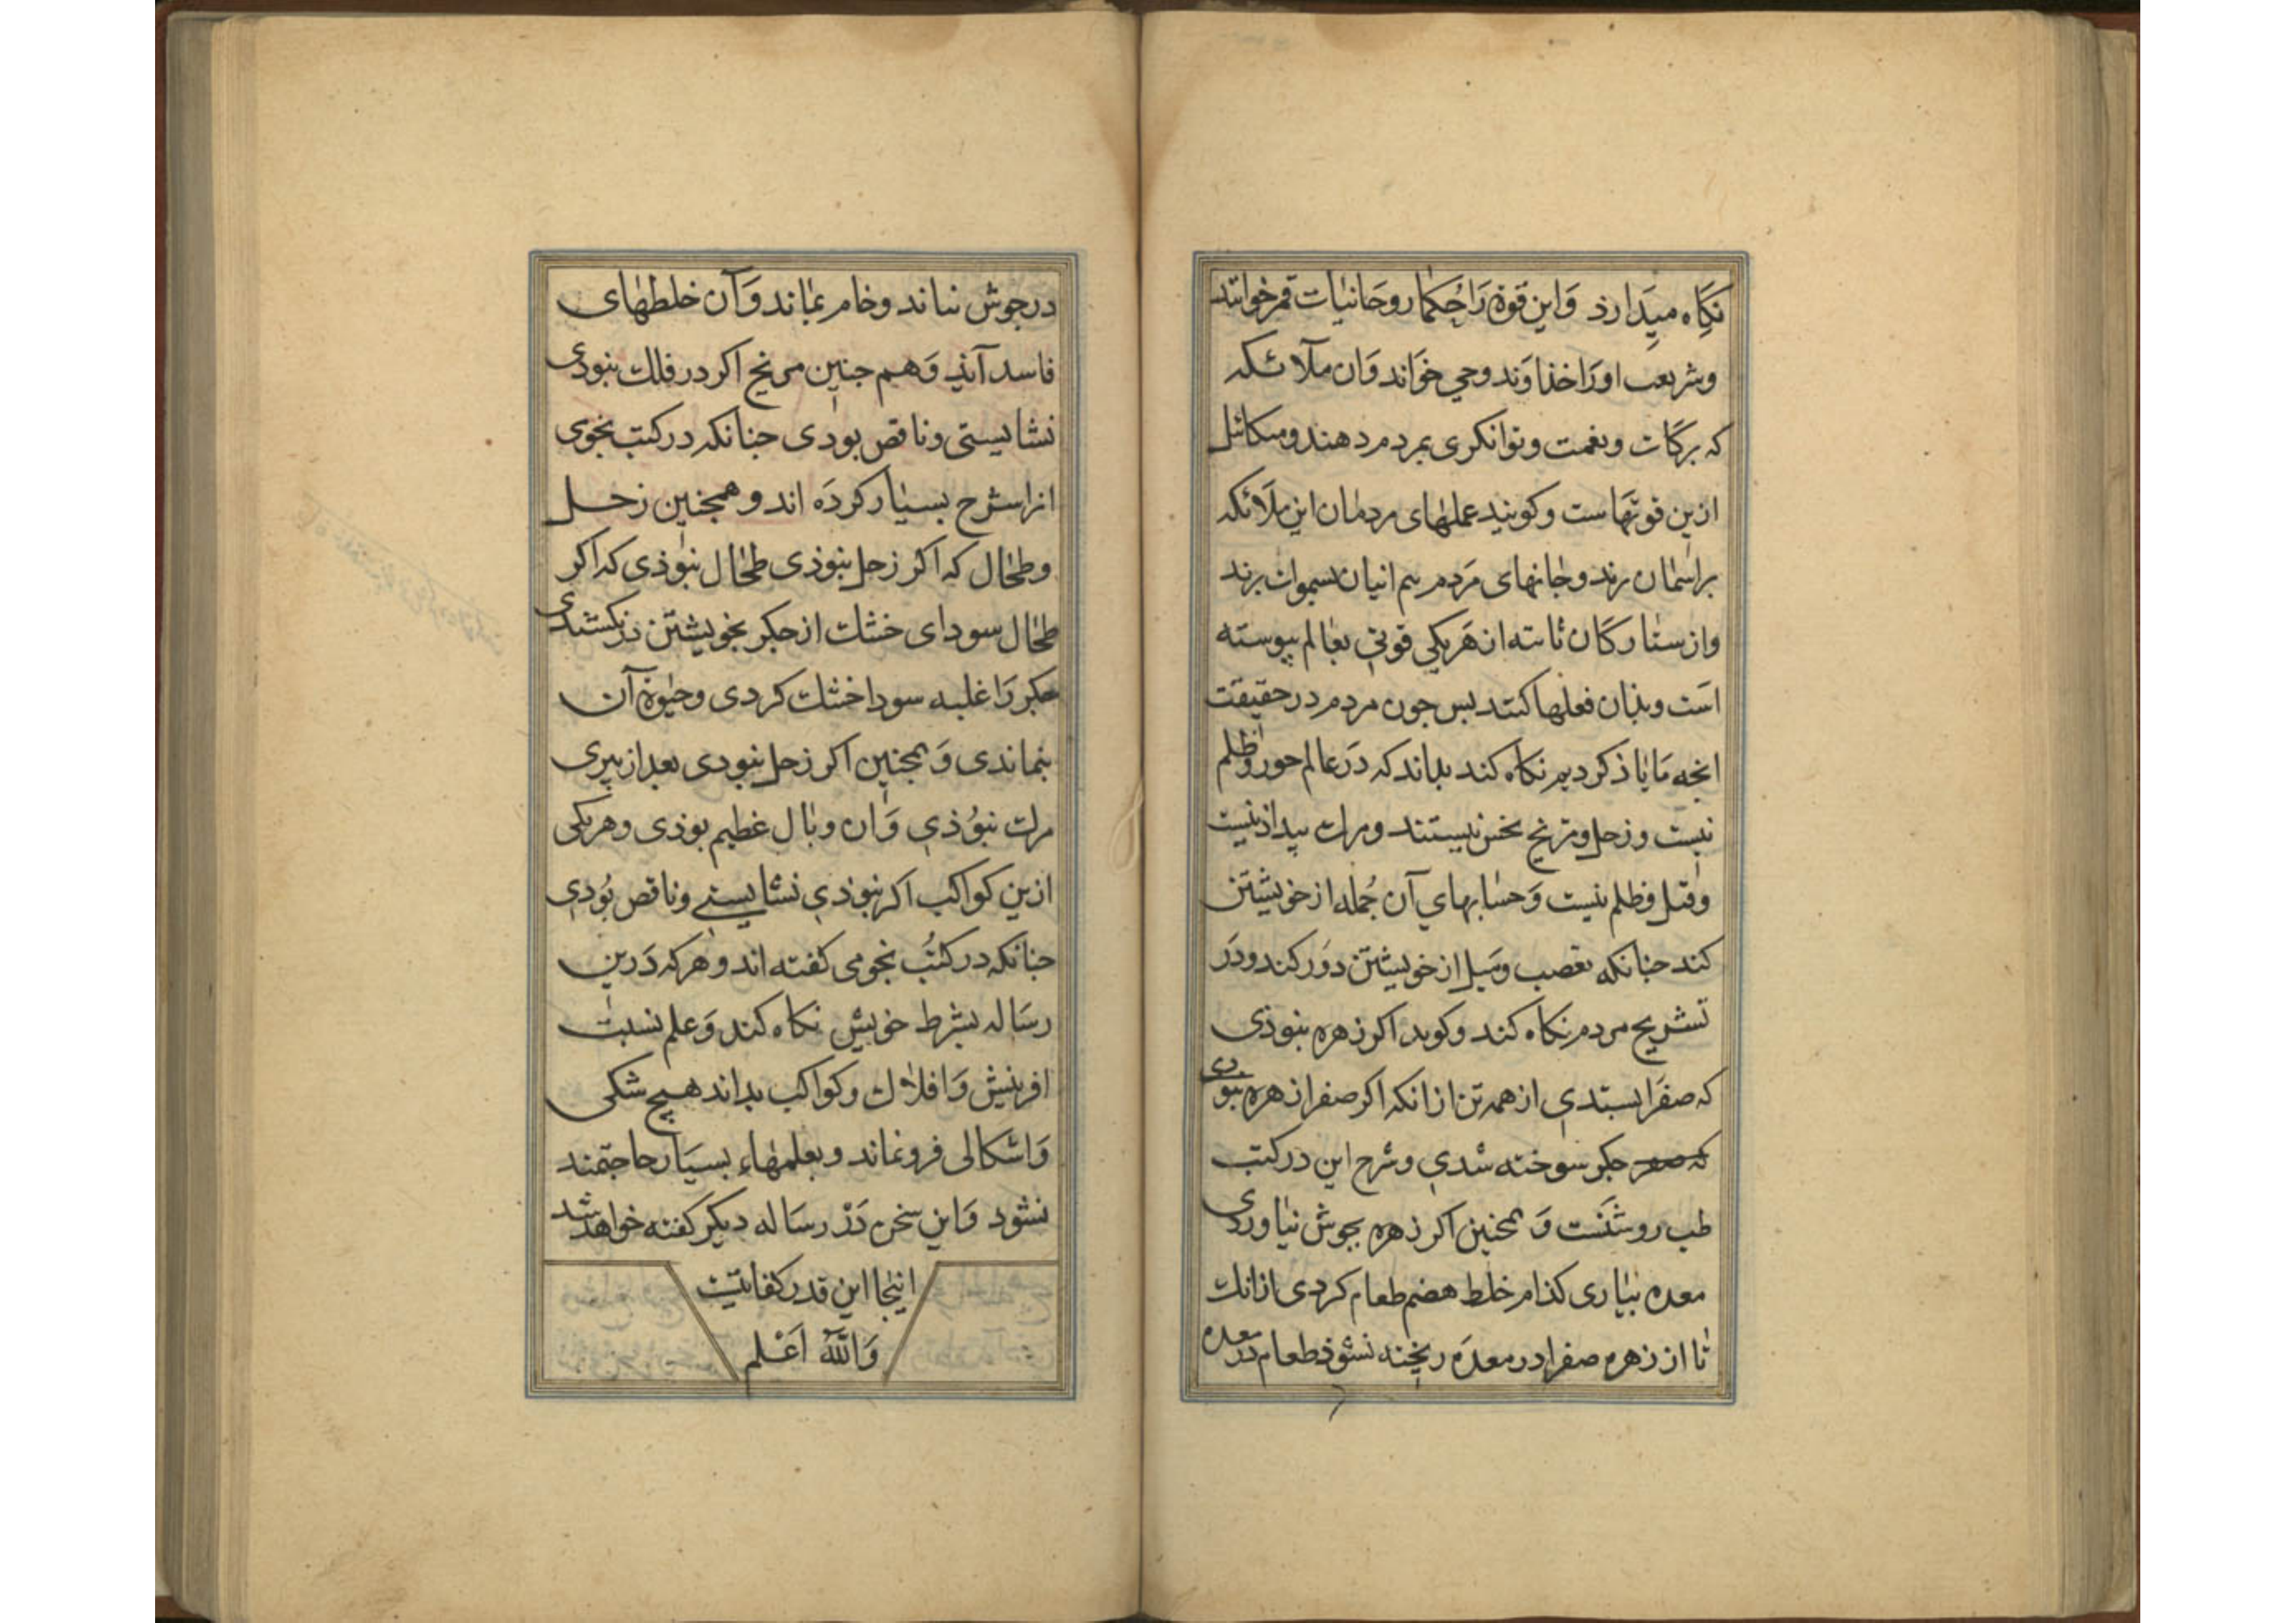 نکاه میدارذ وَاین قوة رَا حُکما روحَانیات قمر خوانند
وشریعت اورَا خذاوَند وحی خوَاند وَان ملآئکه
که برکات ونعمت وتوانکری بمردم دهند ومیکائیل
ازین قوتهاست وکویند عملهای مردمان این ملائکه
براسمان برند وجانهای مَردم هم اینان بسموات برند
واز ستارکان ثابته از هَریکی قوتی بعالم پیوسته
است وبذان فعلها کنند بس جون مردم در حقیقت
انجه مَا یاذ کردیم نکاه کند بداند که دَر عالم جور وظلم
نیست وزحل ومریخ نحس نیستند ومرک بیداذ نیست
وقتل وظلم نیست وَحسابهای آن جُمله از خویشتن
کند جنانکه تعصب ومَیل از خویشتن دوَر کند ودَر
تشریح مردم نکاه کند وکوید اکر زهره نبوذی
که صفرَا بستدی از همه تن از انکه اکر صفرا زهره نبودی
جکر سوخته شدی وشرح این در کتب
طب روشنَست وَ همجنین اکر زهره بجوش نیاوردی
معده بیاری کذام خلط هضم طعام کردی از انک
تا از زهره صفرا در معدَه ریخته نشوذ طعام در معده
در جوش نیاند وخام بماند وَآن خلطهای
فاسد آیذ وَهم جنین مریخ اکر در فلک نبودی
نشایستی وناقص بودی جنانکه در کتب نجومی
انرا شرح بسیار کردَه اند وهمجنین زحل
وطحال که اکر زحل نبوذی طحال نبوذی که اکر
طحال سودای خشک از جکر بخویشتن درنکشندی
جکر رَا غلبه سودا خشک کردی وحیوة آن
بنماندی وَهمجنین اکر زحل نبودی بعد از پیری
مرک نبوُذی وَان وبال عظیم بوذی وهریکی
ازین کواکب اکر نبوذی نشایستی وناقص بُودی
جنانکه در کتُب نجومی کفته اند وهرکه دَرین
رسَاله بشرط خویش نکاه کند وَعلم نسبت
افرینش وَافلاک وکواکب بداند هیچ شکی
وَاشکالی فرونماند وبعلمهاء بسیَار حاجتمند
نشود وَاین سخن دَرْ رسَاله دیکر کفته خواهد شد
اینجا این قدر کفایتیت
وَاللّٰه اَعْلم